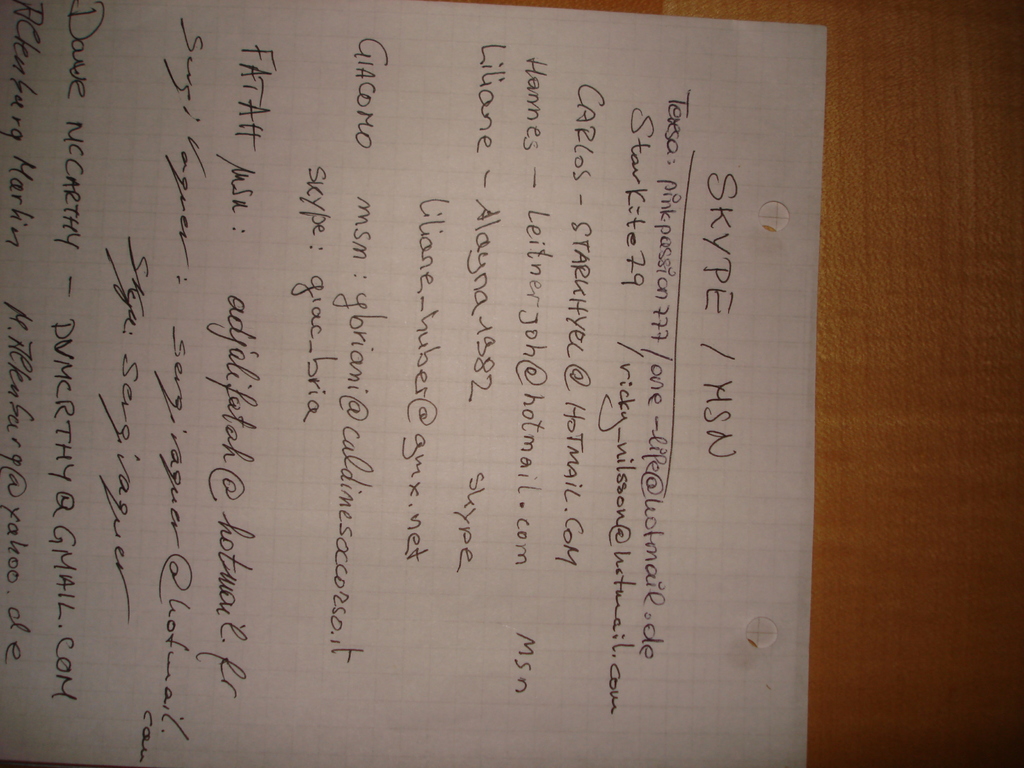 SKYPE / MSN
Tessa: pinkpassion777 / one-life@hotmail.de
StarKite79 / vicky_nilsson@hotmail.com
CARLOS - STARUHYEL@HOTMAIL.COM
Hannes - leitnerjoh@hotmail.com MSN
Liliane - Alayna1982 Skype
liliane_huber@gmx.net
GIACOMO msn: gbriani@cudinesoccorso.it
skype: giac_bria
FATAH MSN: adjalifatah@hotmail.fr
Sergi Vaguer: sergivaguer@hotmail.com
Skype: sergivaguer
DAVE MCCARTHY - DVMCRTHY@GMAIL.COM
Altenburg Martin M.Altenburg@yahoo.de